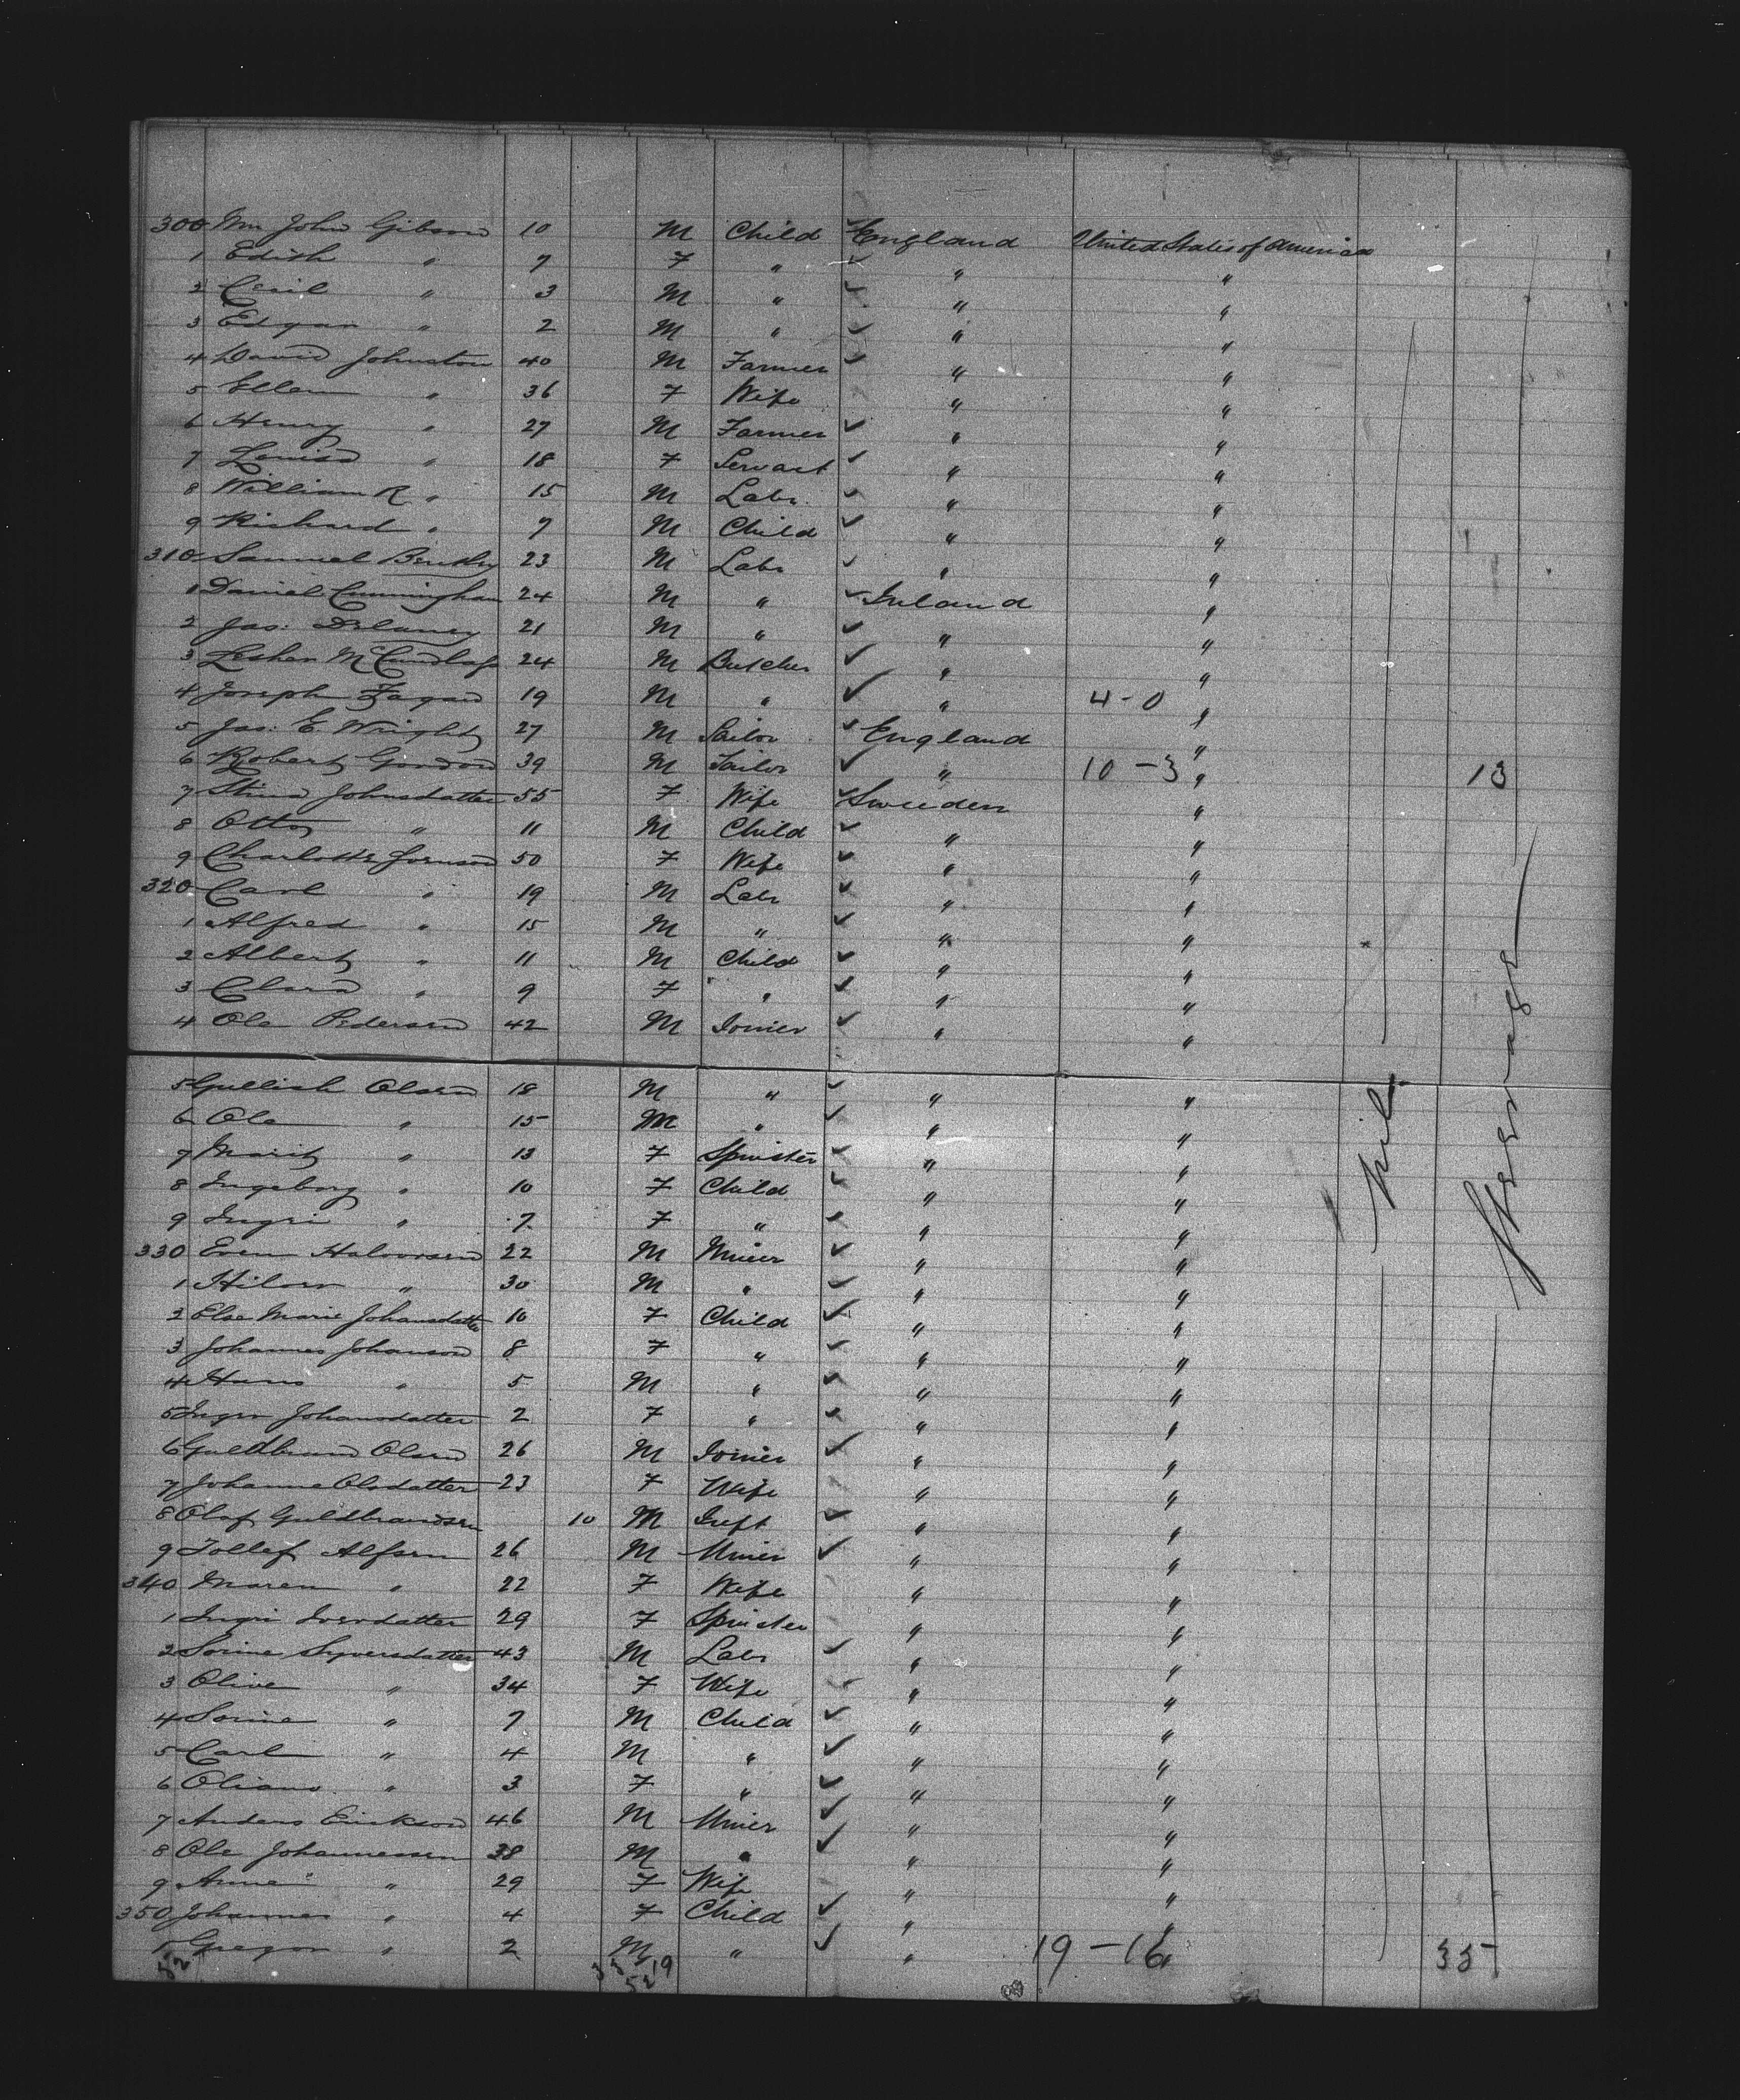 300 Wm John Gibson 10 M Child England United States of America
1 Edith " 7 F " " "
2 Cecil " 3 M " " "
3 Edgar " 2 M " " "
4 David Johnston 40 M Farmer " "
5 Ellen " 36 F Wife " "
6 Henry " 27 M Farmer " "
7 Louisa " 18 F Servant " "
8 William R " 15 M Labr. " "
9 Richard " 7 M Child " "
310 Samuel 23 M Labr " "
1 Daniel Cunningham 24 M " Ireland "
2 Jas: Delaney 21 M " " "
3 24 M Butcher " "
4 Joseph 19 M " " 4-0 "
5 Jas: E Wright 27 M England "
6 Robert Gordon 39 M Tailor " 10-3 " 13
7 Stina Johnsdatter 55 F Wife Sweden "
8 Otto " 11 M Child " "
9 Charlotte 50 F Wife " "
320 Carl " 19 M Labr " "
1 Alfred " 15 M " " "
2 Albert " 11 M Child " "
3 Clara " 9 F " " "
4 Ole Pedersen 42 M Joiner " "
5 Olsen 18 M " " "
6 Ole " 15 M " " "
7 Marit " 13 F Spinster " "
8 Ingeborg " 10 F Child " "
9 Ingri " 7 F " " "
330 Even Halvorsen 22 M Miner " "
1 " 30 M " " "
2 Else Marie Johansdatter 10 F Child " "
3 Johannes Johanson 8 F " " "
4 Hans " 5 M " " "
5 Johansdatter 2 F " " "
6 Guldbrand Olsen 26 M Joiner " "
7 Johanne Olsdatter 23 F Wife " "
8 Olaf Guldbrandsen 10 M Inft " "
9 Tollef Alfsen 26 M Miner " "
340 Maren " 22 F Wife " "
1 Ingri 29 F Spinster " "
2 Syversdatter 43 M Labr " "
3 Olive " 34 F Wife " "
4 " 7 M Child " "
5 Carl " 4 M " " "
6 " 3 F " " "
7 Anders Erickson 46 M Miner " "
8 Ole Johannessen 38 M " " "
9 Anne " 29 F Wife " "
350 Johannes " 4 F Child " "
1 Gregor " 2 M " " 19-16 " 35
52
33 19
52
Nil
Steerage